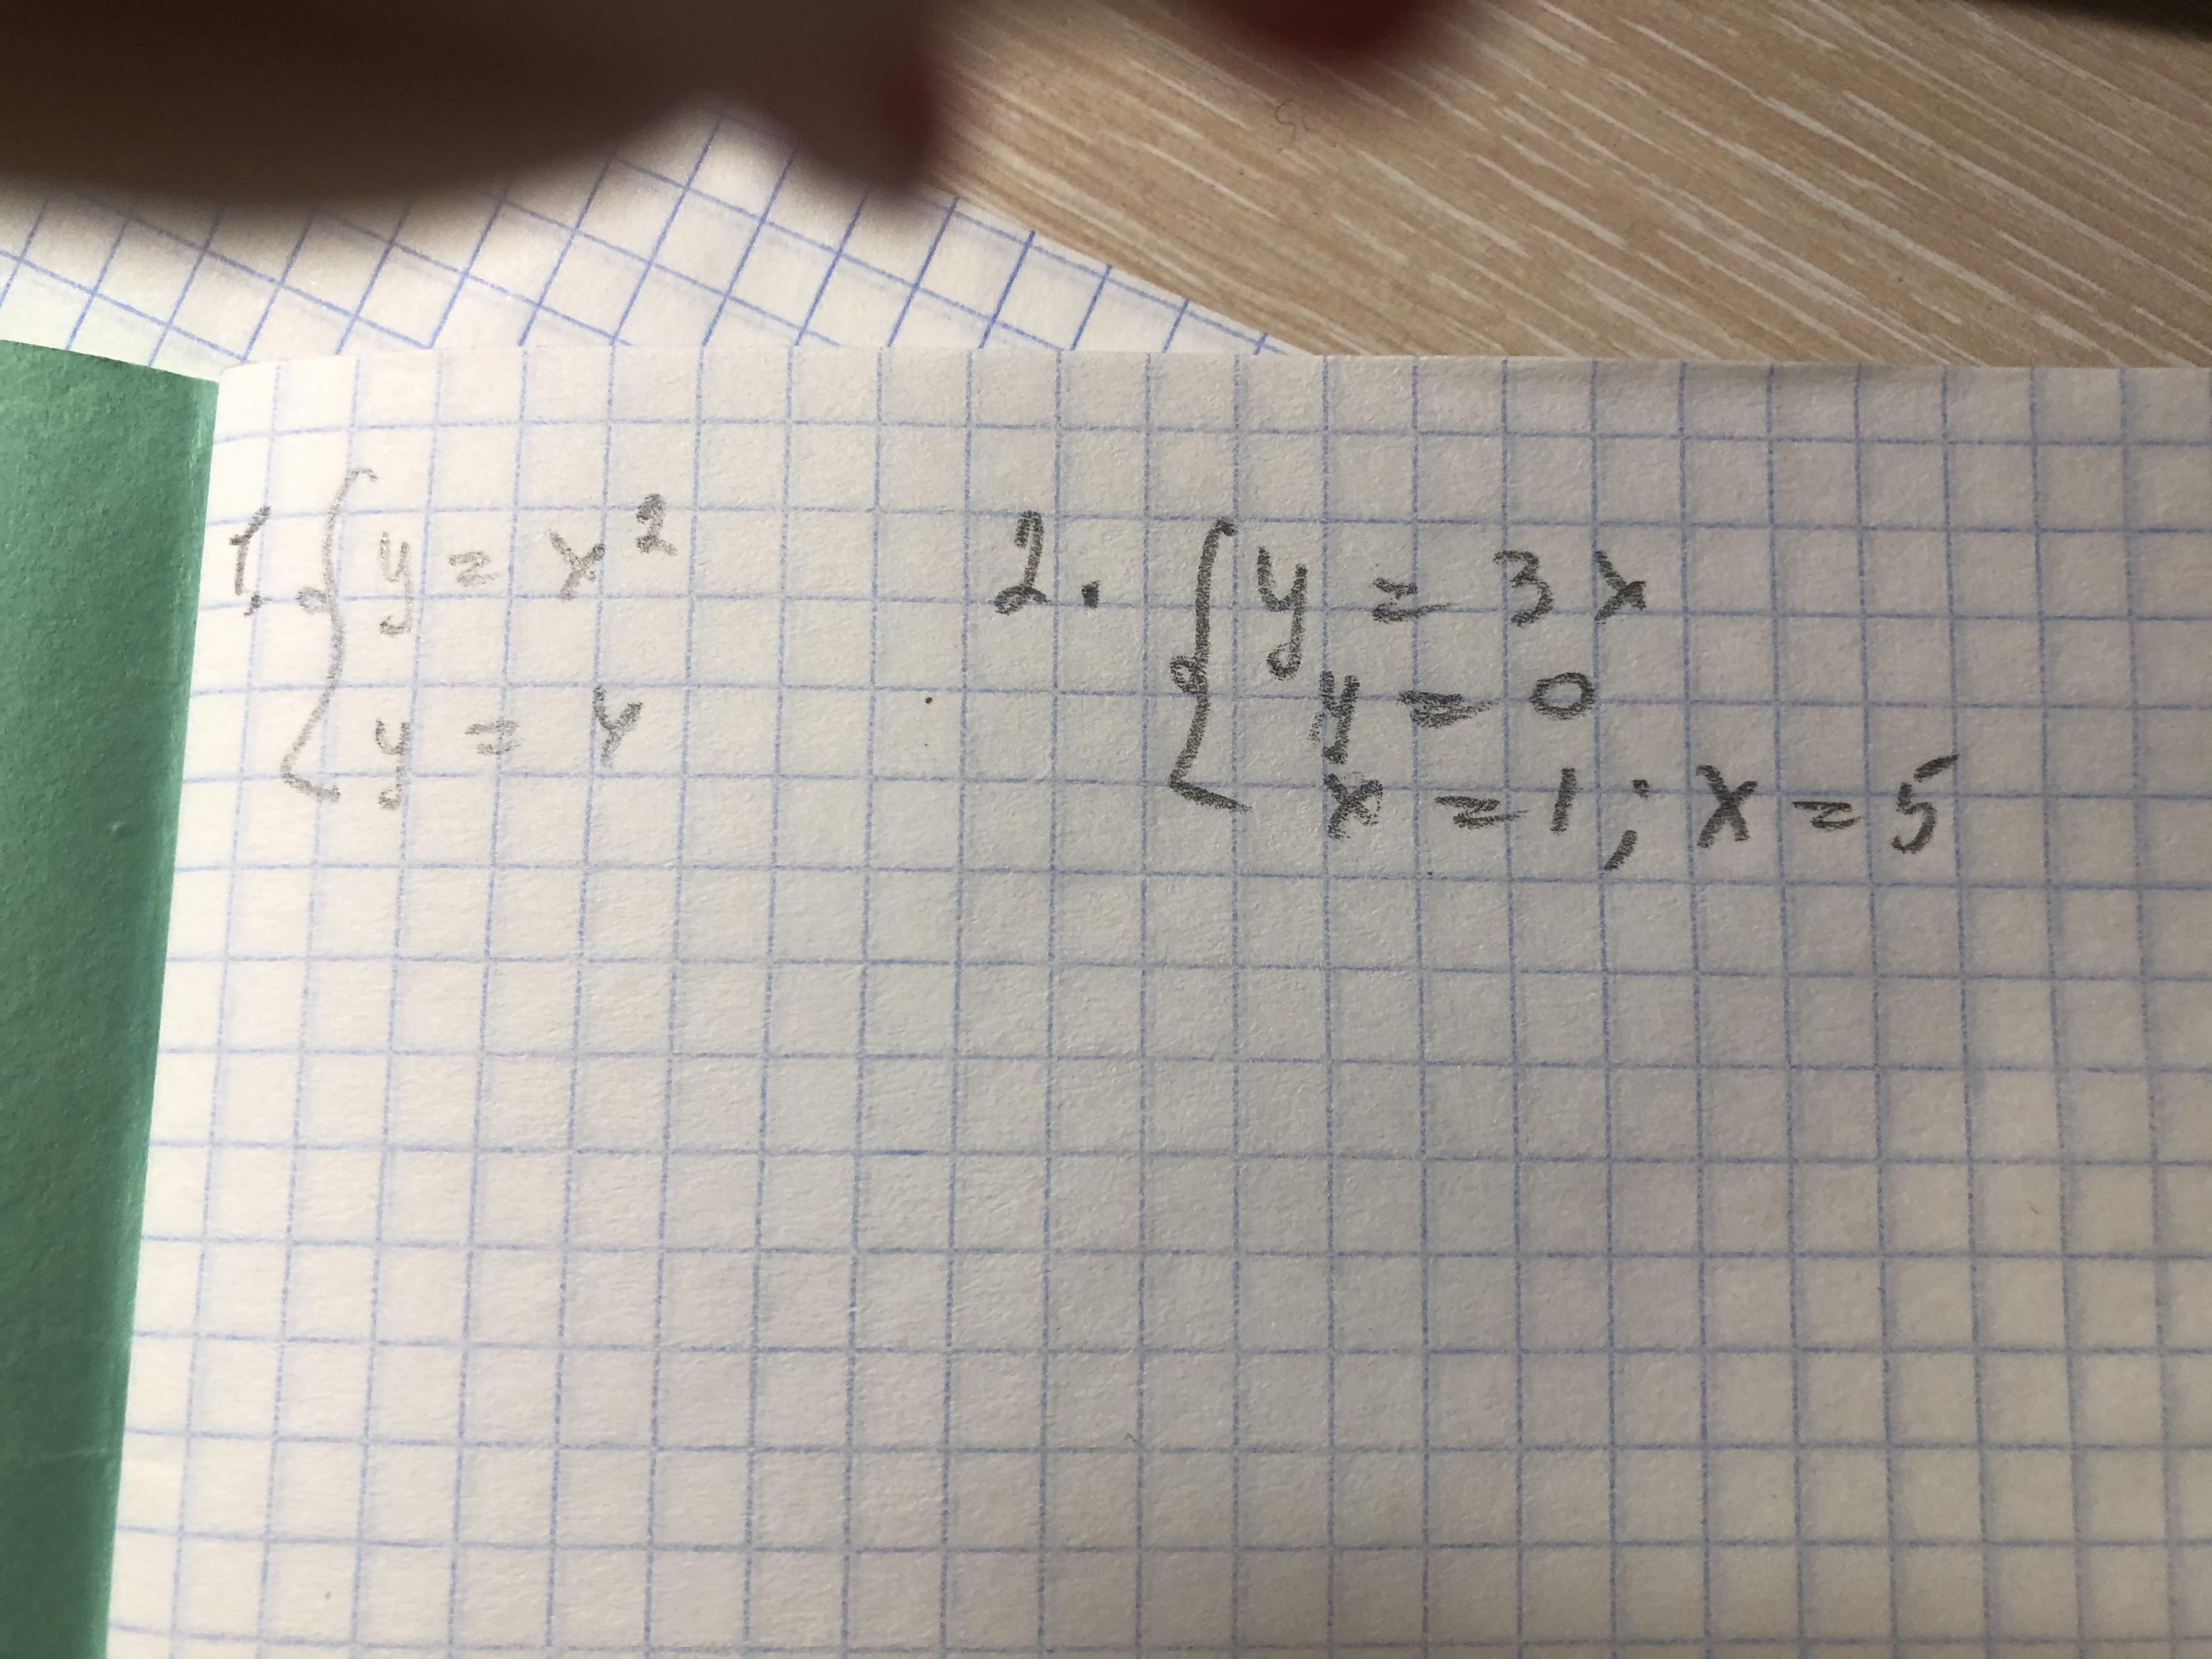 1. { y = x²
y = 4
2. { y = 3x
y = 0
x = 1; x = 5